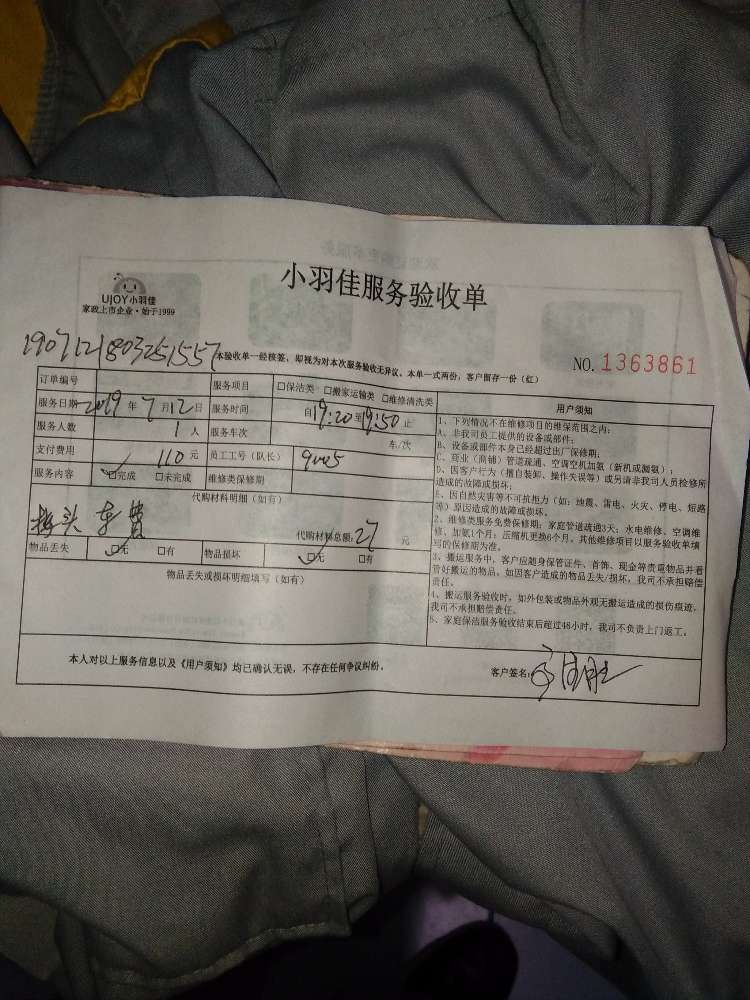 小羽佳服务验收单
UJOY小羽佳
家政上市企业·始于1999
1907121803251557
本验收单一经核签、即视为对本次服务验收无异议。本单一式两份，客户留存一份（红）
NO. 1363861
订单编号 服务项目 □保洁类 □搬家运输类 □维修清洗类
服务日期 2019 年 7 月 12 日 服务时间 自 19:20 至 19:50 止
服务人数 1 人 服务车次 车/次
支付费用 110 元 员工工号（队长） 9005
服务内容 □完成 □未完成 维修类保修期
代购材料明细（如有）
接头 车费 代购材料总额: 27 元
物品丢失 □无 □有 物品损坏 □无 □有
物品丢失或损坏明细填写（如有）
用户须知
1、下列情况不在维修项目的维保范围之内：
A、非我司员工提供的设备或部件；
B、设备或部件本身已经超过出厂保修期；
C、商业（商铺）管道疏通、空调空机加氨（新机或漏氨）；
D、因客户行为（擅自装卸、操作失误等）或另请非我司人员检修所
造成的故障或损坏；
E、因自然灾害等不可抗拒力（如：地震、雷电、火灾、停电、短路
等）原因造成的故障或损坏。
2、维修类服务免费保修期：家庭管道疏通3天；水电维修、空调维
修、加氨1个月；压缩机更换6个月。其他维修项目以服务验收单填
写的保修期为准。
3、搬运服务中，客户应随身保管证件、首饰、现金等贵重物品并看
管好搬运的物品，如因客户造成的物品丢失/损坏，我司不承担赔偿
责任。
4、搬运服务验收时，如外包装或物品外观无搬运造成的损伤痕迹，
我司不承担赔偿责任。
5、家庭保洁服务验收结束后超过48小时，我司不负责上门返工。
本人对以上服务信息以及《用户须知》均已确认无误，不存在任何争议纠纷。
客户签名: